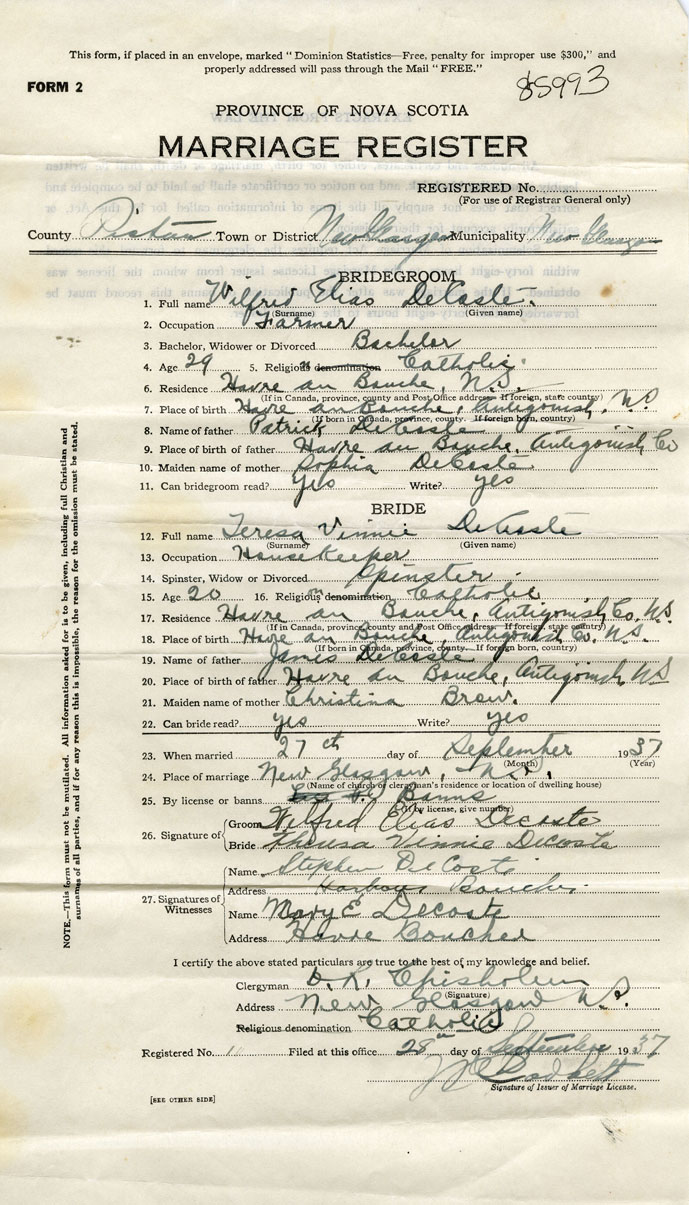 This form, if placed in an envelope, marked "Dominion Statistics—Free, penalty for improper use $300," and
properly addressed will pass through the Mail "FREE."
FORM 2
85993
PROVINCE OF NOVA SCOTIA
MARRIAGE REGISTER
REGISTERED No.
(For use of Registrar General only)
County Pictou Town or District New Glasgow Municipality New Glasgow
BRIDEGROOM
1. Full name Wilfred Elias DeCoste
(Surname) (Given name)
2. Occupation Farmer
3. Bachelor, Widower or Divorced Bachelor
4. Age 29 5. Religious denomination Catholic
6. Residence Havre au Bouche, N.S.
(If in Canada, province, county and Post Office address. If foreign, state country)
7. Place of birth Havre au Bouche, Antigonish, N.S.
(If born in Canada, province, county. If foreign born, country)
8. Name of father Patrick DeCoste
9. Place of birth of father Havre au Bouche, Antigonish Co
10. Maiden name of mother Sophia DeCoste
11. Can bridegroom read? yes Write? yes
BRIDE
12. Full name Teresa Vinnie DeCoste
(Surname) (Given name)
13. Occupation Housekeeper
14. Spinster, Widow or Divorced Spinster
15. Age 20 16. Religious denomination Catholic
17. Residence Havre au Bouche, Antigonish, Co. N.S.
(If in Canada, province, county and Post Office address. If foreign state country)
18. Place of birth Havre au Bouche, Antigonish Co. N.S.
(If born in Canada, province, county. If foreign born, country)
19. Name of father James DeCoste
20. Place of birth of father Havre au Bouche, Antigonish, N.S
21. Maiden name of mother Christina Brow.
22. Can bride read? yes Write? yes
23. When married 27th day of September 1937
(Month) (Year)
24. Place of marriage New Glasgow, N.S.
(Name of church or clergyman's residence or location of dwelling house)
25. By license or banns Banns
(If by license, give number)
26. Signature of
Groom Wilfred Elias Decoste
Bride Theresa Vinnie Decoste
27. Signatures of Witnesses
Name Stephen DeCoste
Address Harbour Bouche
Name Mary E Decoste
Address Havre Boucher
I certify the above stated particulars are true to the best of my knowledge and belief.
Clergyman D. R. Chisholm
(Signature)
Address New Glasgow N.S.
Religious denomination Catholic
Registered No. Filed at this office 28th day of September 1937
Signature of Issuer of Marriage License.
[SEE OTHER SIDE]
NOTE.—This form must not be mutilated. All information asked for is to be given, including full Christian and
surnames of all parties, and if for any reason this is impossible, the reason for the omission must be stated.